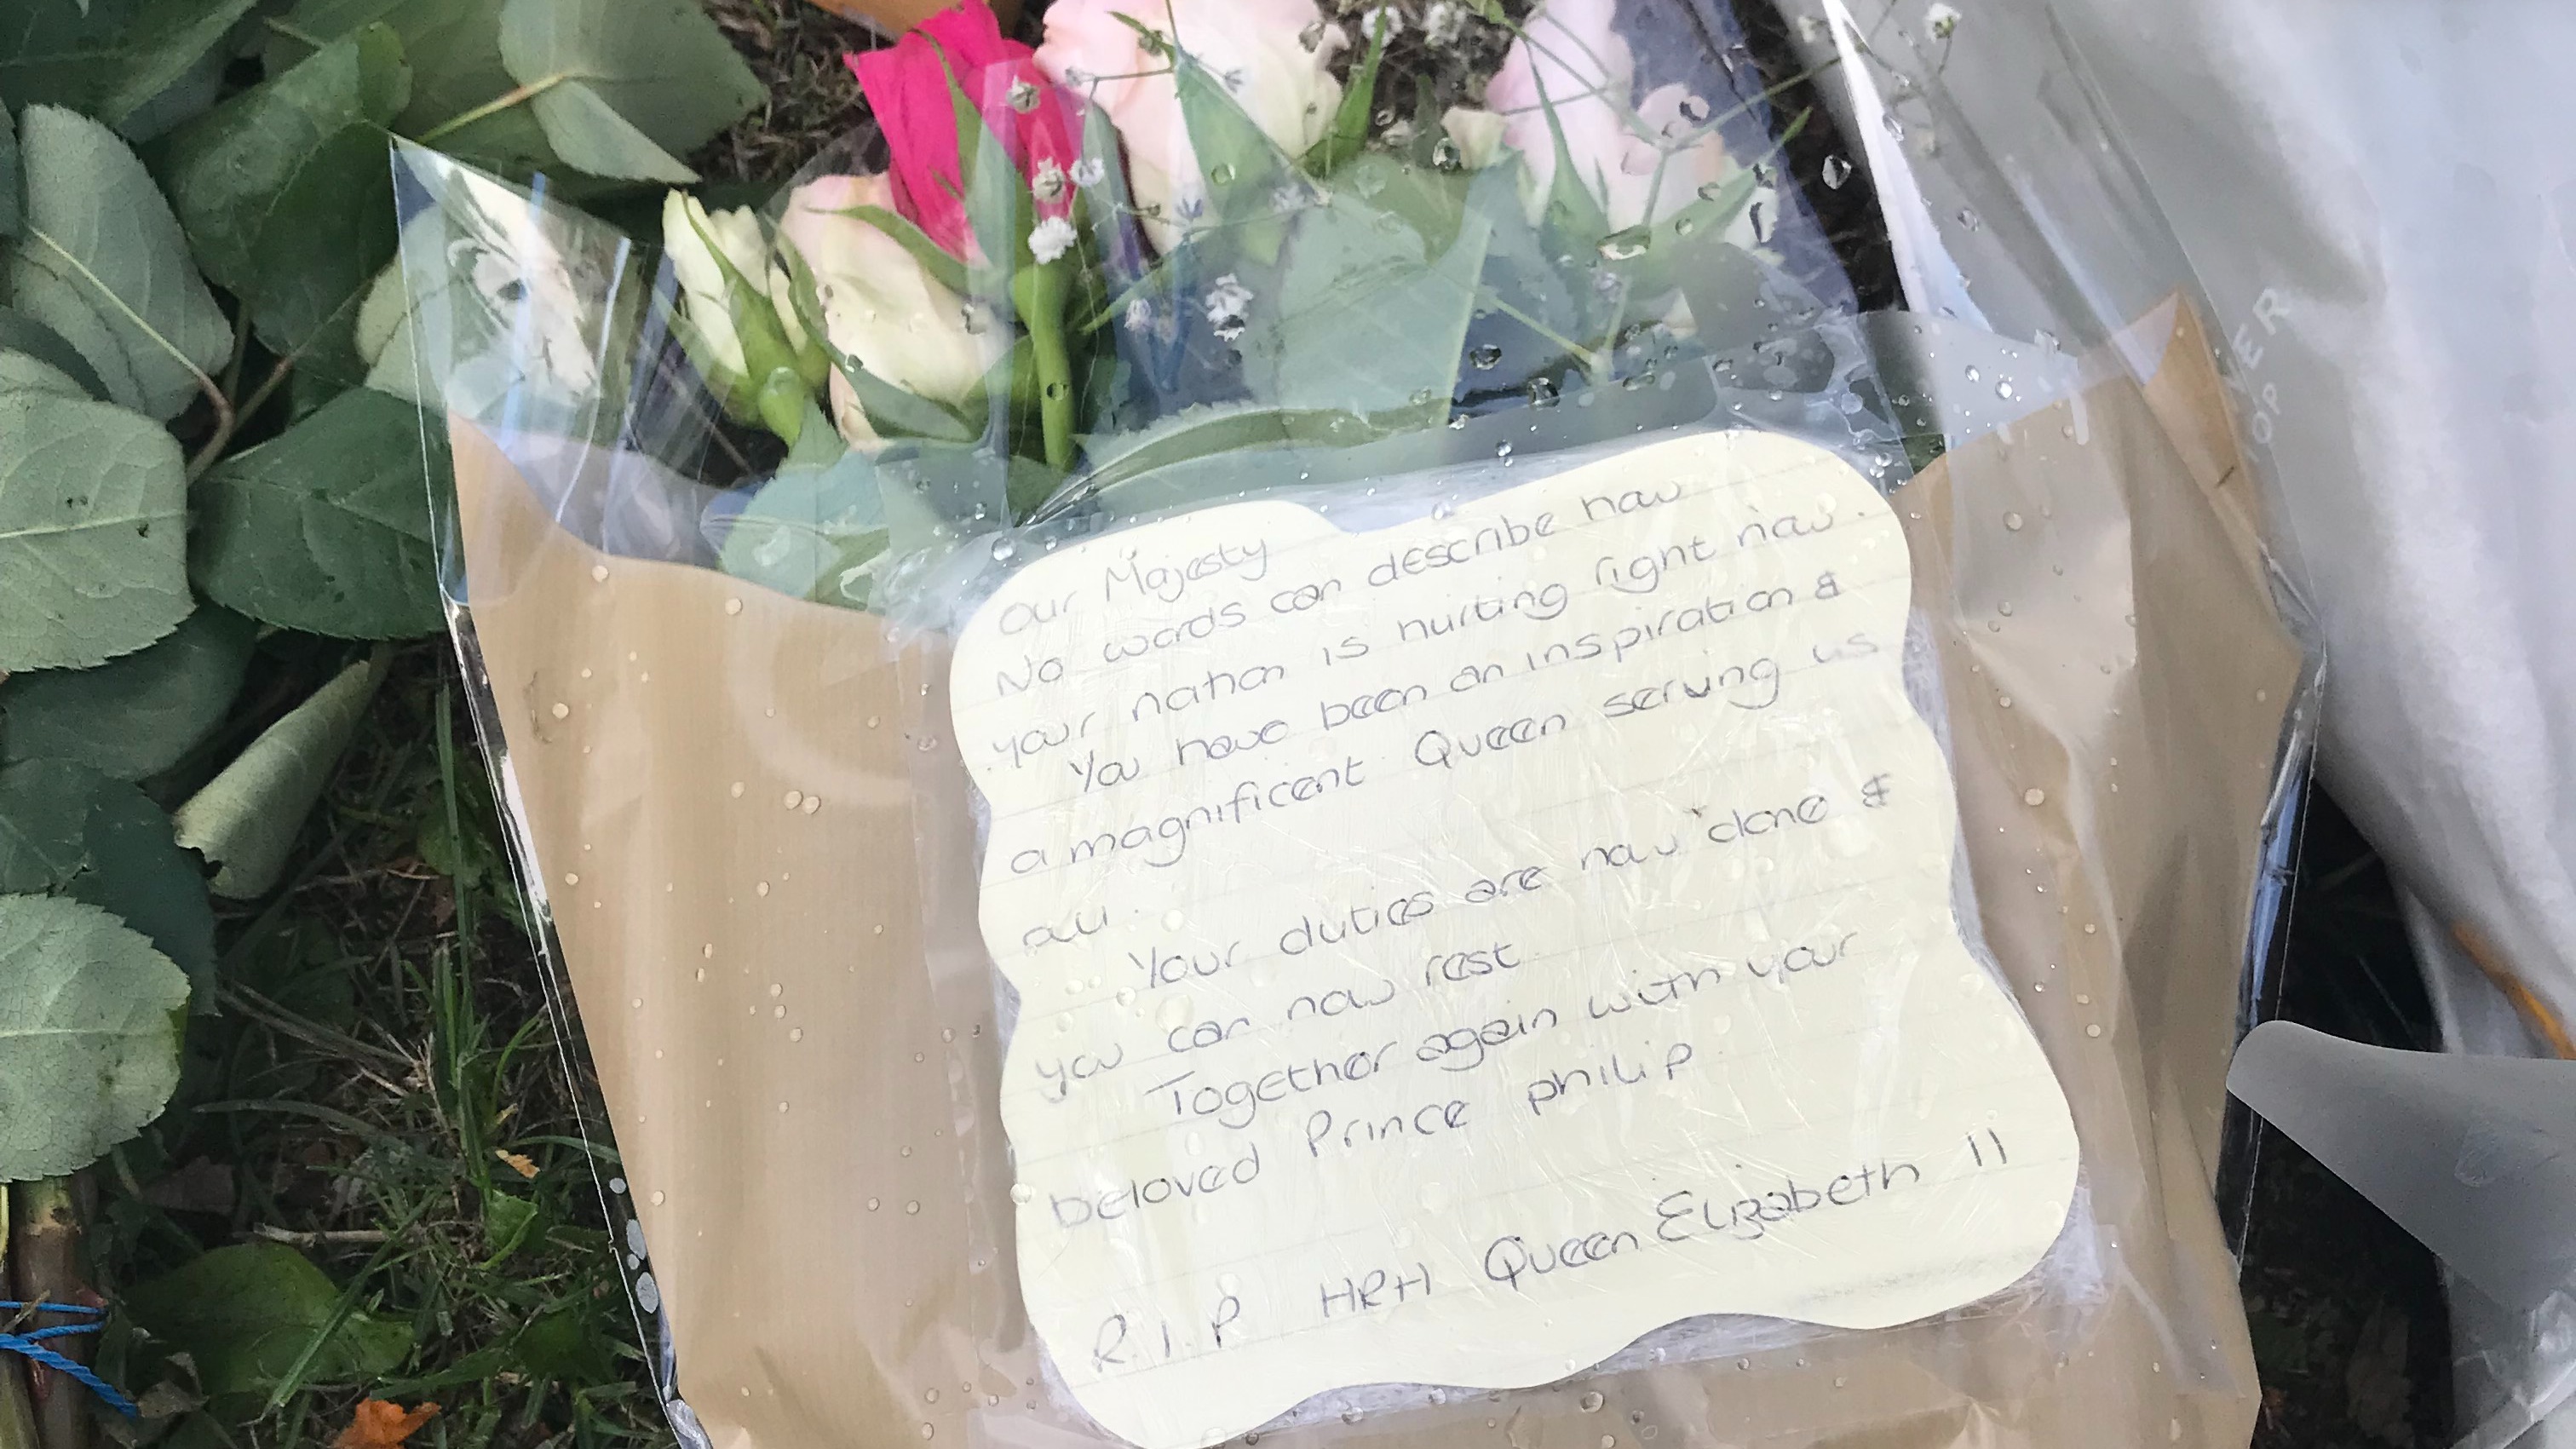 Our Majesty
No words can describe how
your nation is hurting right now.
You have been an inspiration &
a magnificent Queen serving us
all.
Your duties are now done &
you can now rest
Together again with your
beloved Prince philip
R.I.P HRH Queen Elizabeth II